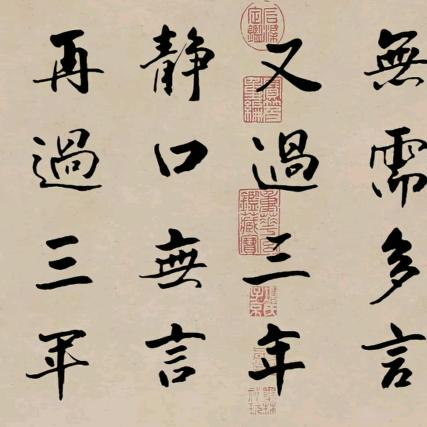 無需多言
又過三年
静口無言
再過三年